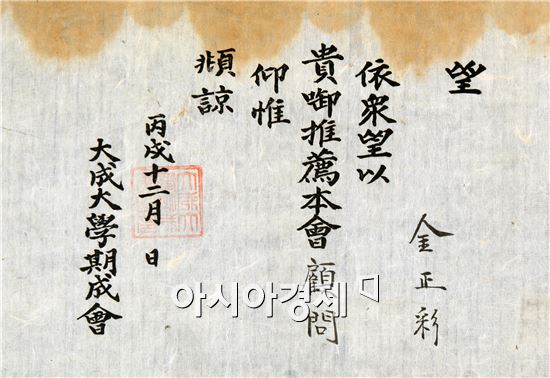 望
金正彩
依衆望以
貴啣推薦本會顧問
仰惟
頫諒
丙戌十二月 日
大成大學期成會
아시아경제